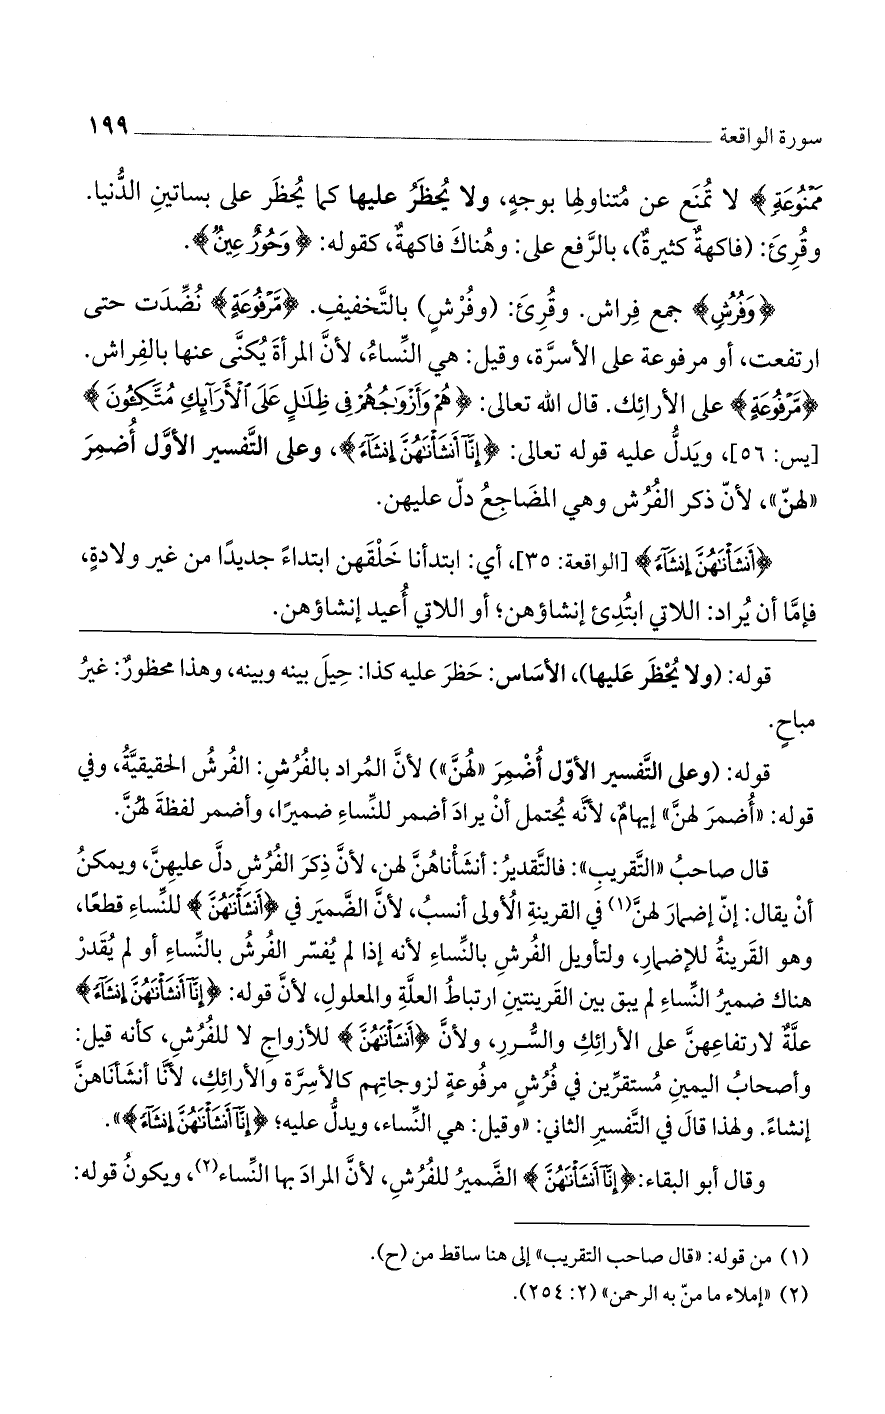 سورة الواقعة ١٩٩
مَمْنُوعَةٍ﴾ لا تُمنَع عن مُتناولِها بوجهٍ، ولا يُحظَرُ عليها كما يُحظَر على بساتينِ الدُّنيا.
وقُرِئَ: (فاكهةٌ كثيرةٌ)، بالرَّفع على: وهُناكَ فاكهةٌ، كقوله: ﴿وَحُورٌ عِينٌ﴾.
﴿وَفُرُشٍ﴾ جمع فِراش. وقُرِئَ: (وفُرْشٍ) بالتَّخفيفِ. ﴿مَّرْفُوعَةٍ﴾ نُضِّدَت حتى
ارتفعت، أو مرفوعة على الأسرَّة، وقيل: هي النِّساءُ، لأنَّ المرأةَ يُكنَّى عنها بالفِراش.
﴿مَّرْفُوعَةٍ﴾ على الأرائِك. قال الله تعالى: ﴿هُمْ وَأَزْوَاجُهُمْ فِى ظِلَالٍ عَلَى ٱلْأَرَآئِكِ مُتَّكِـُٔونَ﴾
[يس: ٥٦]، ويَدلُّ عليه قوله تعالى: ﴿إِنَّآ أَنشَأْنَٰهُنَّ إِنشَآءً﴾، وعلى التَّفسير الأوَّل أُضمِرَ
«لهنّ»، لأنّ ذكر الفُرُش وهي المضَاجِعُ دلّ عليهن.
﴿أَنشَأْنَٰهُنَّ إِنشَآءً﴾ [الواقعة: ٣٥]، أي: ابتدأنا خَلْقَهن ابتداءً جديدًا من غير ولادةٍ،
فإمَّا أن يُراد: اللاتي ابتُدِئ إنشاؤهن؛ أو اللاتي أُعيد إنشاؤهن.
قوله: (ولا يُحْظَر عَليها)، الأسَاس: حَظرَ عليه كذا: حِيلَ بينه وبينه، وهذا محظورٌ: غيرُ
مباحٍ.
قوله: (وعلى التَّفسير الأوّل أُضْمِرَ «لهُنَّ») لأنَّ المُراد بالفُرُشِ: الفُرشُ الحقيقيَّةُ، وفي
قوله: «أُضمرَ لهنَّ» إيهامٌ، لأنَّه يُحتمل أنْ يرادَ أضمر للنِّساءِ ضميرًا، وأضمر لفظةَ لهُنَّ.
قال صاحبُ «التَّقريبِ»: فالتَّقديرُ: أنشَأْناهُنَّ لهن، لأنَّ ذِكرَ الفُرُشِ دلَّ عليهِنَّ، ويمكنُ
أنْ يقال: إنّ إضمارَ لهنَّ(١) في القرينةِ الأولى أنسبُ، لأنَّ الضَّميرَ في ﴿أَنشَأْنَٰهُنَّ﴾ للنِّساءِ قطعًا،
وهو القَرينةُ للإضمارِ، ولتأويل الفُرشِ بالنِّساءِ لأنه إذا لم يُفسّر الفُرشُ بالنِّساءِ أو لم يُقَدرْ
هناك ضميرُ النِّساءِ لم يبق بين القَرينتينِ ارتباطُ العلَّةِ والمعلولِ، لأنَّ قوله: ﴿إِنَّآ أَنشَأْنَٰهُنَّ إِنشَآءً﴾
علَّةٌ لارتفاعِهنَّ على الأرائِكِ والسُّررِ، ولأنَّ ﴿أَنشَأْنَٰهُنَّ﴾ للأزواجِ لا للفُرُشِ، كأنه قيل:
وأصحابُ اليمينِ مُستقرِّين في فُرُشٍ مرفُوعةٍ لزوجاتِهم كالأسِرَّة والأرائِكِ، لأنَّا أنشأنَاهنَّ
إنشاءً. ولهذا قالَ في التَّفسيرِ الثاني: «وقيل: هي النِّساء، ويدلُّ عليه؛ ﴿إِنَّآ أَنشَأْنَٰهُنَّ إِنشَآءً﴾».
وقال أبو البقاء: ﴿إِنَّآ أَنشَأْنَٰهُنَّ﴾ الضَّميرُ للفُرُشِ، لأنَّ المرادَ بها النِّساء(٢)، ويكونُ قوله:
(١) من قوله: «قال صاحب التقريب» إلى هنا ساقط من (ح).
(٢) «إملاء ما منّ به الرحمن» (٢: ٢٥٤).